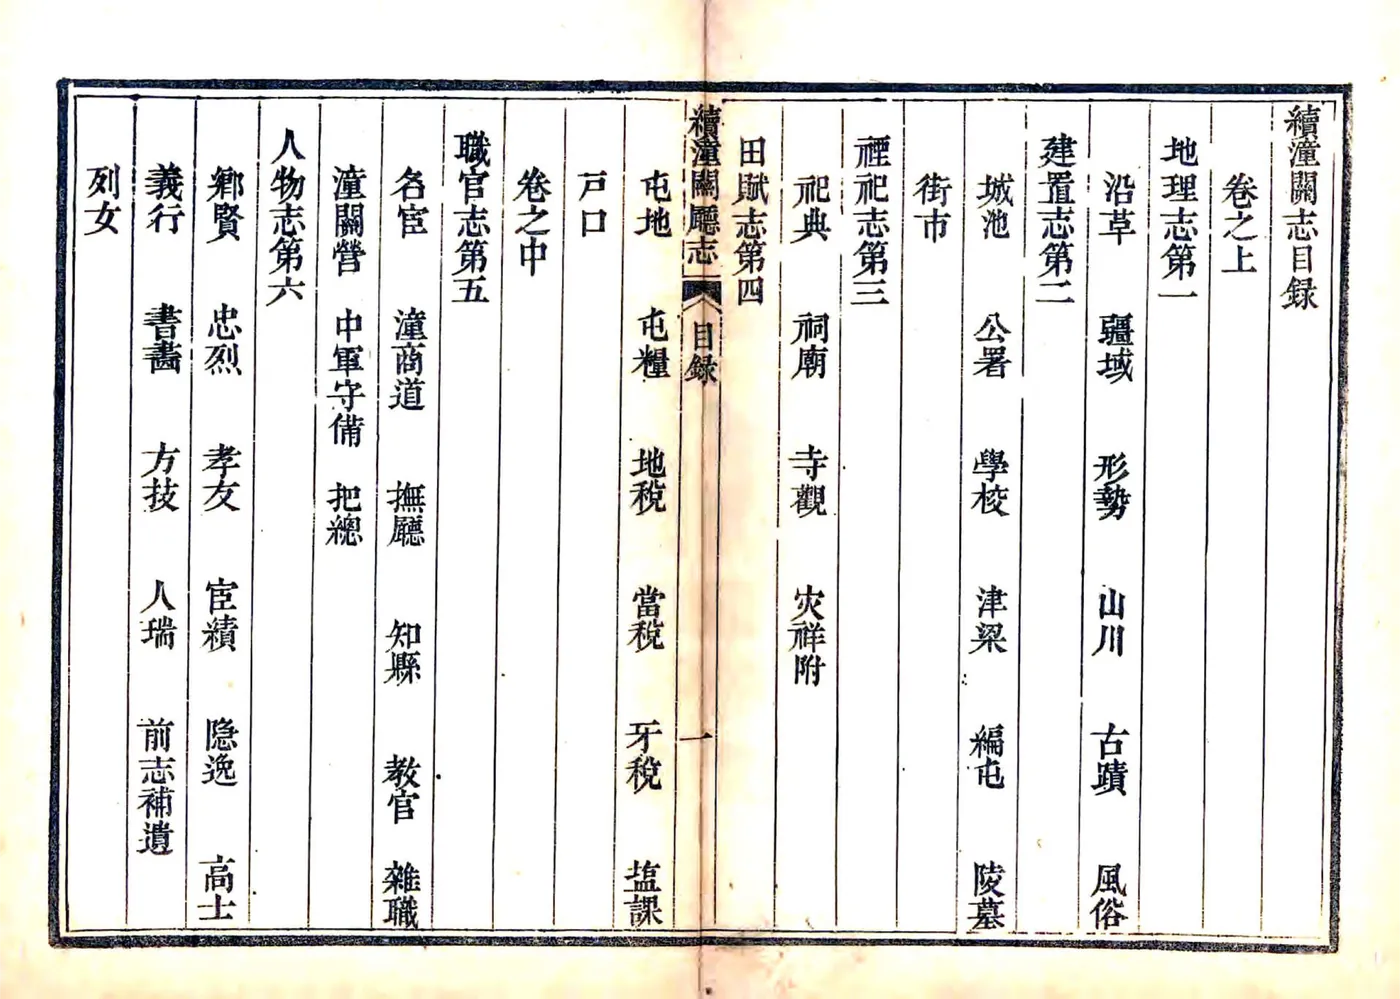 續潼關志目録
卷之上
地理志第一
沿革 疆域 形勢 山川 古蹟 風俗
建置志第二
城池 公署 學校 津梁 編屯 陵墓
街市
禋祀志第三
祀典 祠廟 寺觀 灾祥附
田賦志第四
續潼關廳志 目録 一
屯地 屯糧 地稅 當稅 牙稅 塩課
戸口
卷之中
職官志第五
名宦 潼商道 撫廳 知縣 教官 雜職
潼關營 中軍守備 把總
人物志第六
鄉賢 忠烈 孝友 宦績 隐逸 高士
義行 書畵 方技 人瑞 前志補遺
列女